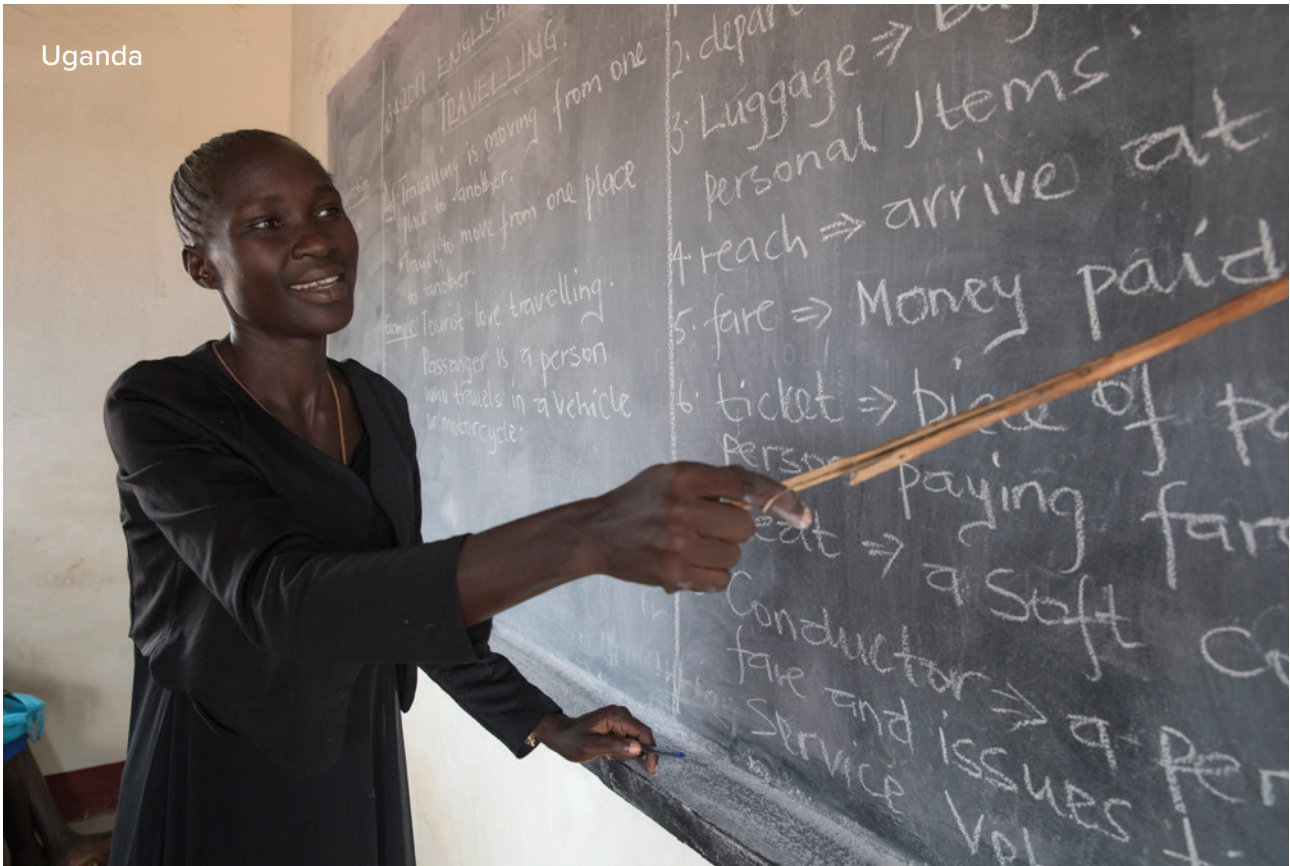 Uganda
ENGLISH
TRAVELLING.
Travelling is moving from one
place to another.
Travel; to move from one place
to another
Example: Tourist love travelling.
Passanger is a person
who travels in a vehicle
or motorcycle.
2. depar
3. Luggage ⇒
personal Items.
4 reach ⇒ arrive at
5. fare ⇒ Money paid
6. ticket ⇒ piece of
paying fare
⇒ a Soft
Conductor ⇒ a
fare and issues
service